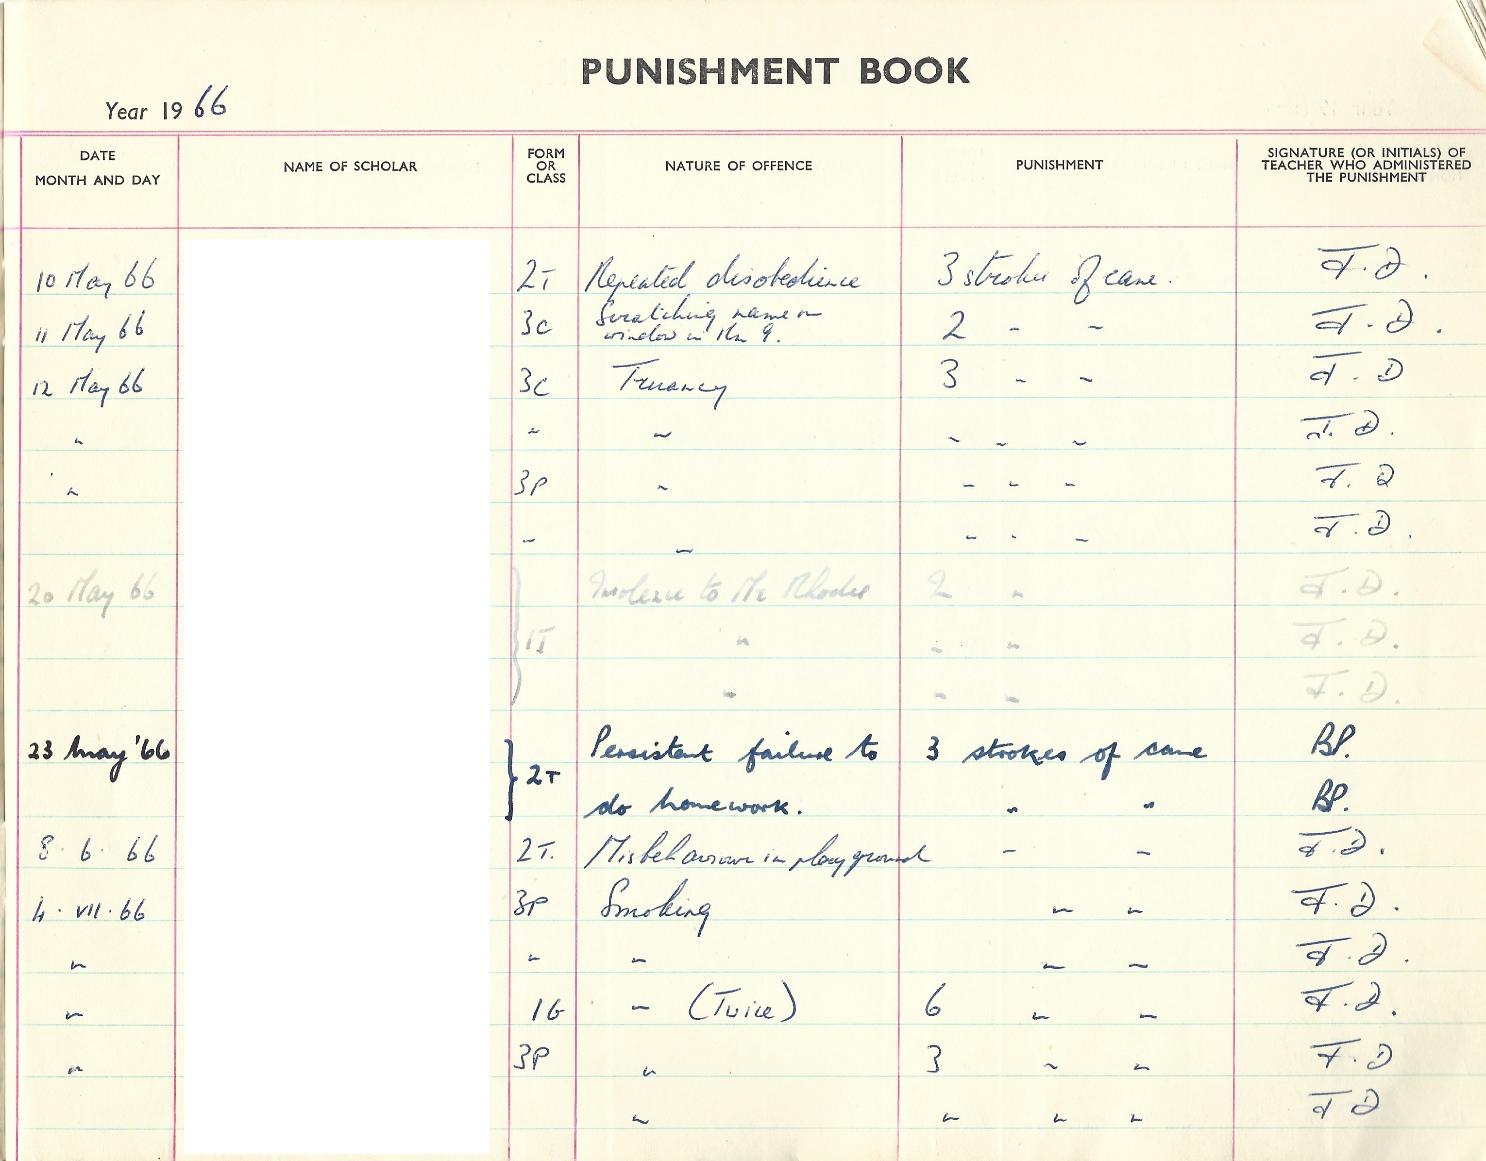 PUNISHMENT BOOK
Year 1966
DATE MONTH AND DAY NAME OF SCHOLAR FORM OR CLASS NATURE OF OFFENCE PUNISHMENT SIGNATURE (OR INITIALS) OF TEACHER WHO ADMINISTERED THE PUNISHMENT
10 May 66 2T Repeated disobedience 3 strokes of cane. F.D.
11 May 66 3C Scratching name on window in Rm 9. 2 " " F.D.
12 May 66 3C Truancy 3 " " F.D
" " " " " " F.D.
" 3P " " " " F.D
" " " " " F.D.
20 May 66 Insolence to Mr Rhodes 2 " F.D.
1T " " " F.D.
" " " F.D.
23 May '66 Persistent failure to 3 strokes of cane BP.
2T do homework. " " BP.
8.6.66 2T. Misbehaviour in playground " " F.D.
4.VII.66 3P Smoking " " F.D.
" " " " " F.D.
" 1G " (Twice) 6 " " F.D.
" 3P " 3 " " F.D
" " " " F D